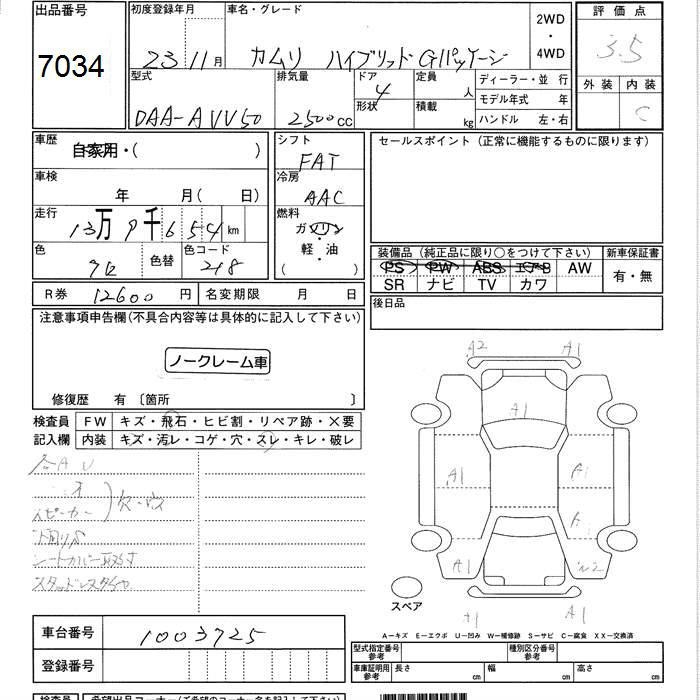 出品番号 初度登録年月 車名・グレード 2WD 評価点
7034 23 11月 カムリ ハイブリッド Gパッケージ ・ 3.5
4WD
型式 排気量 ドア 定員 ディーラー・並行 外装 内装
4 人
DAA-AVV50 2500cc 形状 積載 モデル年式 年 C
kg ハンドル 左・右
車歴 シフト セールスポイント (正常に機能するものに限ります)
自家用・( ) FAT
車検 冷房
年 月(日) AAC
走行 燃料
13万9千654km ガソリン
色 色替 色コード 軽・油 装備品 (純正品に限り○をつけて下さい) 新車保証書
クロ 218 ( ) PS PW ABS エアB AW 有・無
SR ナビ TV カワ
R券 12600円 名変期限 月 日 後日品
注意事項申告欄(不具合内容等は具体的に記入して下さい)
ノークレーム車
修復歴 有 〔箇所 〕
検査員 FW キズ・飛石・ヒビ割・リペア跡・×要
記入欄 内装 キズ・汚レ・コゲ・穴・スレ・キレ・破レ
各AU
スピーカー
シートカバー取付
スタッドレスタイヤ
A2 A1
A1
A1 A1
A
A1
A1 A1
スペア
A−キズ E−エクボ U−凹み W−補修跡 S−サビ C−腐食 XX−交換済
車台番号 1003725
登録番号
型式指定番号 参考 種別区分番号 参考
車庫証明用 参考 長さ cm 幅 cm 高さ cm